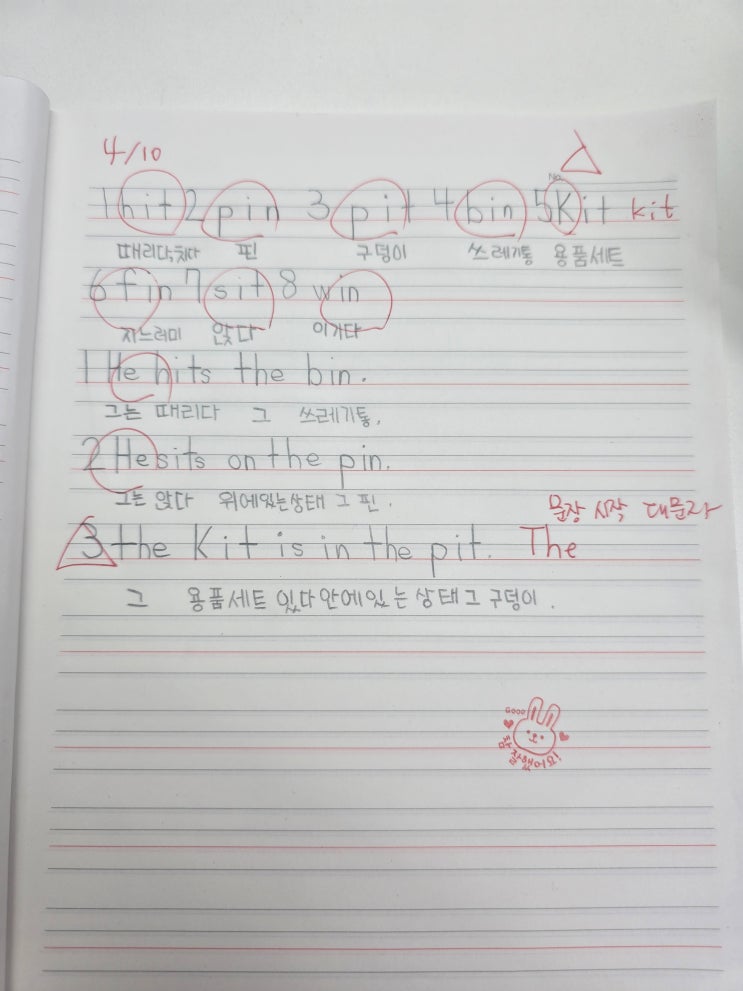 4/10
No.
1 hit 2 pin 3 pit 4 bin 5 Kit kit
때리다,치다 핀 구덩이 쓰레기통 용품세트
6 fin 7 sit 8 win
지느러미 앉다 이기다
1 He hits the bin.
그는 때리다 그 쓰레기통.
2 He sits on the pin.
그는 앉다 위에있는상태 그 핀.
문장 시작 대문자
3 the Kit is in the pit. The
그 용품세트 있다 안에있는 상태 그 구덩이.
GOOD
참 잘했어요!